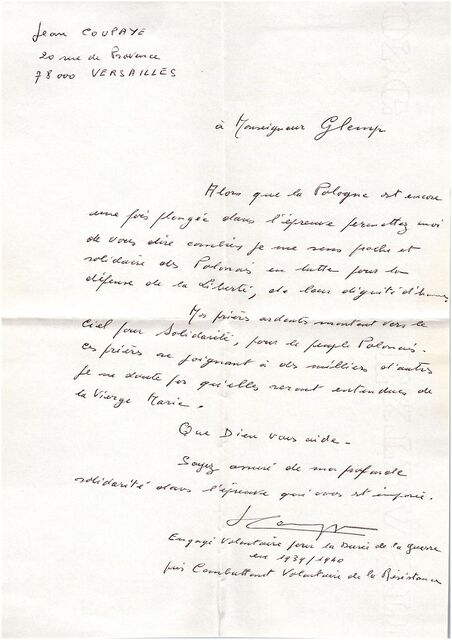 Jean COUPAYE
20 rue de Provence
78000 VERSAILLES
à Monseigneur Glemp
Alors que la Pologne est encore
une fois plongée dans l'épreuve permettez moi
de vous dire combien je me sens proche et
solidaire des Polonais en lutte pour la
défense de la Liberté, de leur dignité d'hommes
Mes prières ardentes montent vers le
Ciel pour Solidarité, pour le peuple Polonais.
Ces prières se joignant à des milliers d'autres
je ne doute pas qu'elles seront entendues de
la Vierge Marie.
Que Dieu vous aide.
Soyez assuré de ma profonde
solidarité dans l'épreuve qui vous est imposée.
Engagé Volontaire pour la Durée de la guerre
en 1939/1940
puis Combattant Volontaire de la Résistance